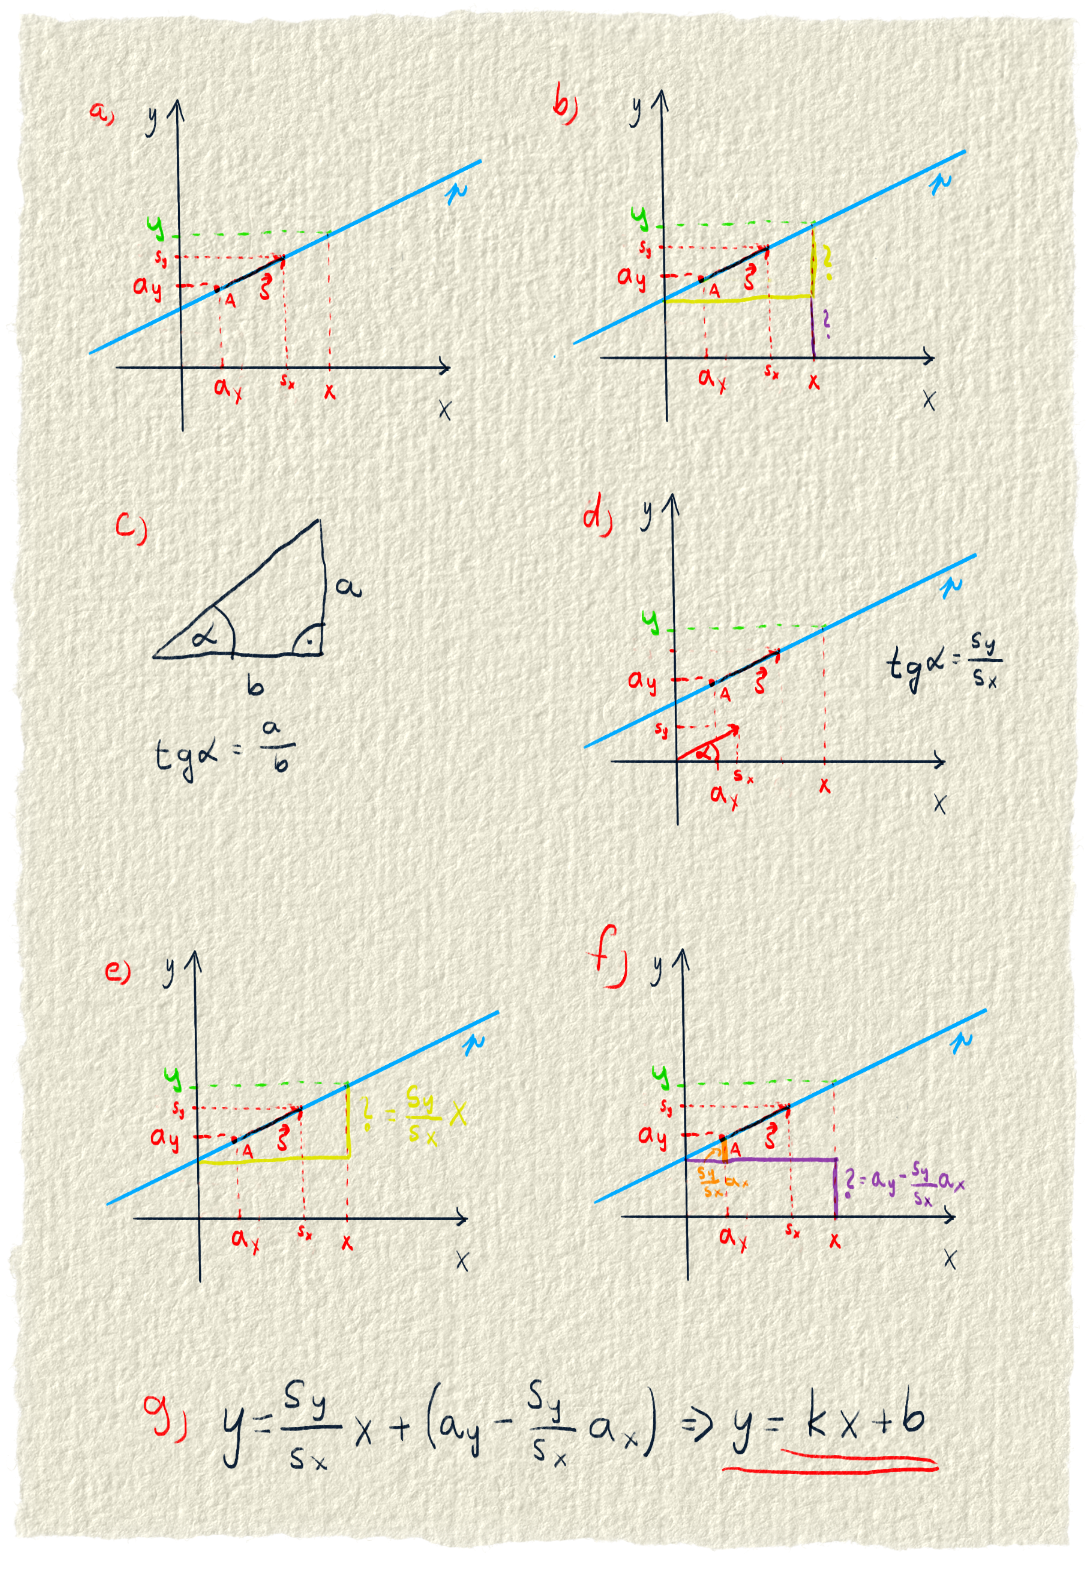 a)
y
p
y
s_y
a_y
A
s⃗
a_x
s_x
x
x
b)
y
p
y
s_y
a_y
A
s⃗
?
?
a_x
s_x
x
x
c)
α
a
b
tgα = a/b
d)
y
p
y
a_y
A
s⃗
tgα = s_y/s_x
s_y
α
s_x
a_x
x
x
e)
y
p
y
s_y
a_y
A
s⃗
? = s_y/s_x x
a_x
s_x
x
x
f)
y
p
y
s_y
a_y
A
s⃗
s_y/s_x a_x
? = a_y - s_y/s_x a_x
a_x
s_x
x
x
g) y = s_y/s_x x + (a_y - s_y/s_x a_x) => y = kx + b